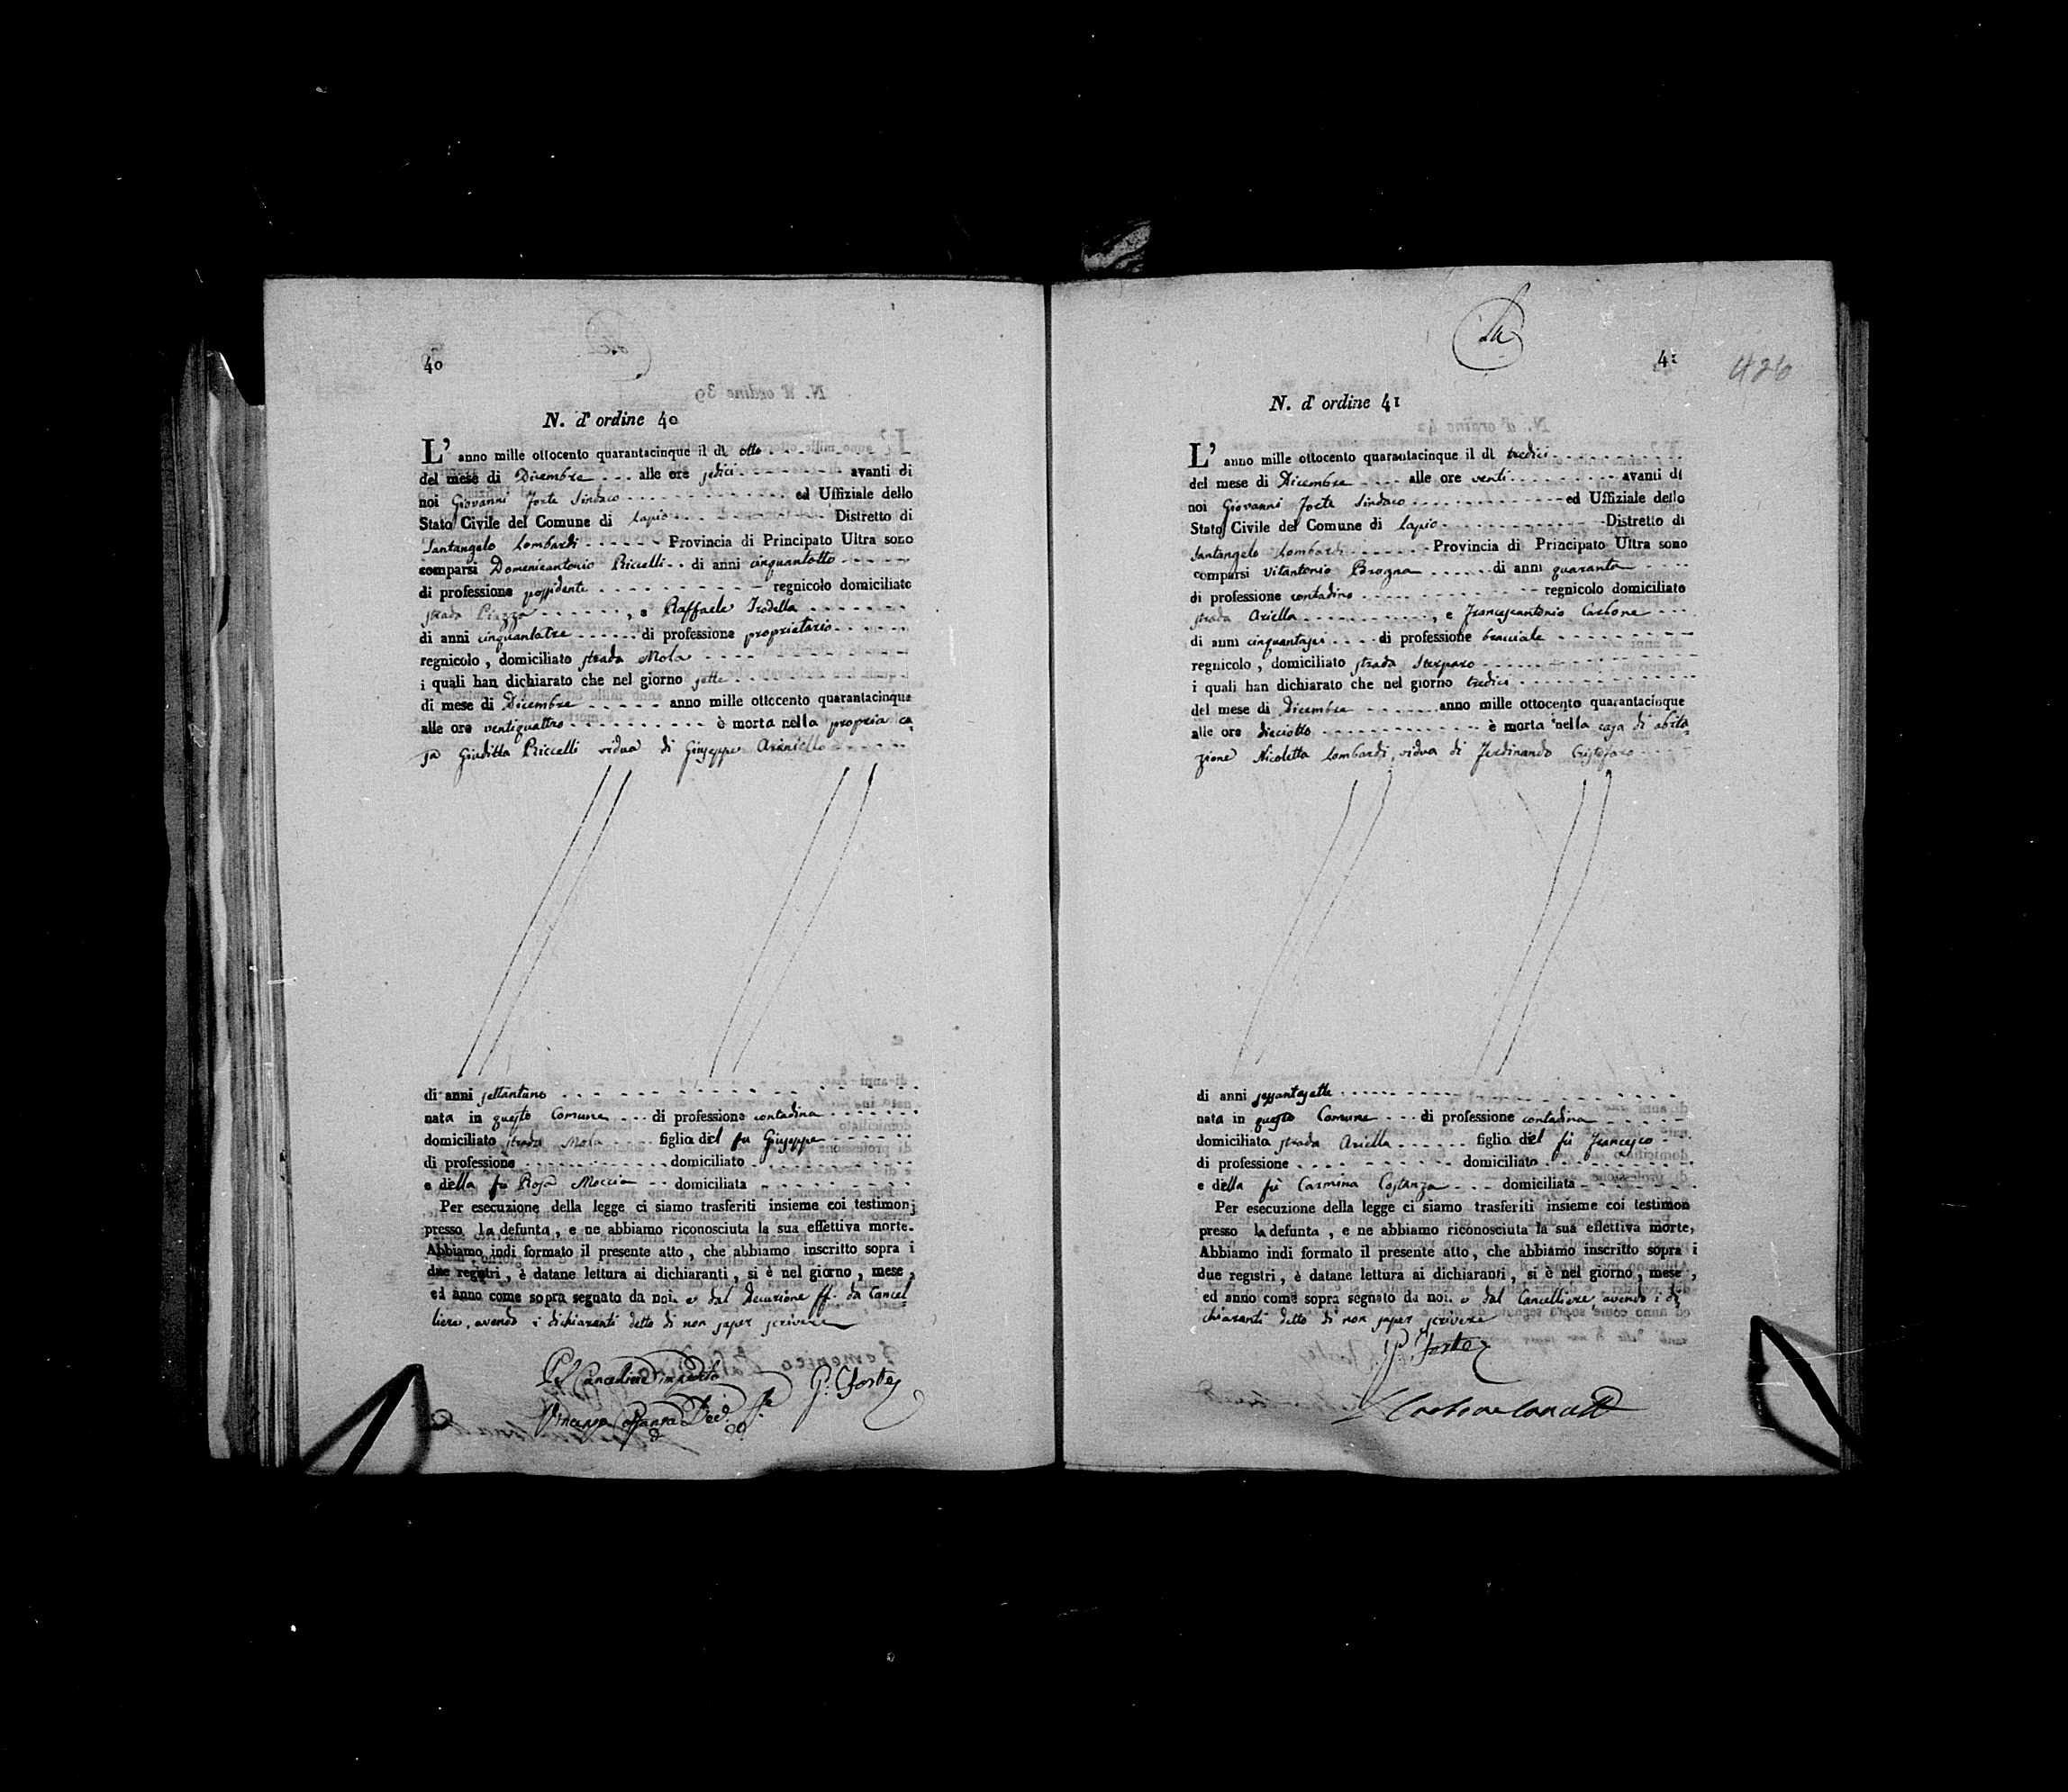 40
N. d' ordine 40
L' anno mille ottocento quarantacinque il dì otto
del mese di Dicembre alle ore sedici avanti di
noi Giovanni Forte Sindaco ed Uffiziale dello
Stato Civile del Comune di Lapio Distretto di
Santangelo Lombardi Provincia di Principato Ultra sono
comparsi Domenicantonio Riccelli di anni cinquantotto
di professione possidente regnicolo domiciliato
strada Piazza , e Raffaele Trodella
di anni cinquantatre di professione proprietario
regnicolo , domiciliato strada Mola
i quali han dichiarato che nel giorno sette
di mese di Dicembre anno mille ottocento quarantacinque
alle ore ventiquattro è morta nella propria ca
sa Giuditta Riccelli vidua di Giuseppe Araniello
di anni settantuno
nata in questo Comune di professione contadina
domiciliato strada Mola figlia del fu Giuseppe
di professione domiciliato
e della fu Rosa Moccia domiciliata
Per esecuzione della legge ci siamo trasferiti insieme coi testimonj
presso la defunta , e ne abbiamo riconosciuta la sua effettiva morte.
Abbiamo indi formato il presente atto , che abbiamo inscritto sopra i
due registri , è datane lettura ai dichiaranti , si è nel giorno , mese ,
ed anno come sopra segnato da noi. e dal Decurione ff. da Cancel
liere, avendo i dichiaranti detto di non saper scrivere
Pel Cancelliere impedito
G. Forte
Vincenzo Costanza Dec.
41
426
N. d' ordine 41
L' anno mille ottocento quarantacinque il dì tredici
del mese di Dicembre alle ore venti avanti di
noi Giovanni Forte Sindaco ed Uffiziale dello
Stato Civile del Comune di Lapio Distretto di
Santangelo Lombardi Provincia di Principato Ultra sono
comparsi Vitantonio Brogna di anni quaranta
di professione contadino regnicolo domiciliato
strada Ariella , e Francescantonio Carbone
di anni cinquantasei di professione bracciale
regnicolo , domiciliato strada
i quali han dichiarato che nel giorno tredici
del mese di Dicembre anno mille ottocento quarantacinque
alle ore dieciotto è morta nella casa di abita
zione Nicoletta Lombardi, vidua di Ferdinando Cristofaro
di anni sessantasette
nata in questo Comune di professione contadina
domiciliata strada Ariella figlia del fù Francesco
di professione domiciliato
e della fù Carmina Costanza domiciliata
Per esecuzione della legge ci siamo trasferiti insieme coi testimon
presso la defunta , e ne abbiamo riconosciuta la sua effettiva morte,
Abbiamo indi formato il presente atto , che abbiamo inscritto sopra i
due registri , è datane lettura ai dichiaranti , si è nel giorno , mese ,
ed anno come sopra segnato da noi. e dal Cancelliere avendo i di
chiaranti detto di non saper scrivere
G. Forte